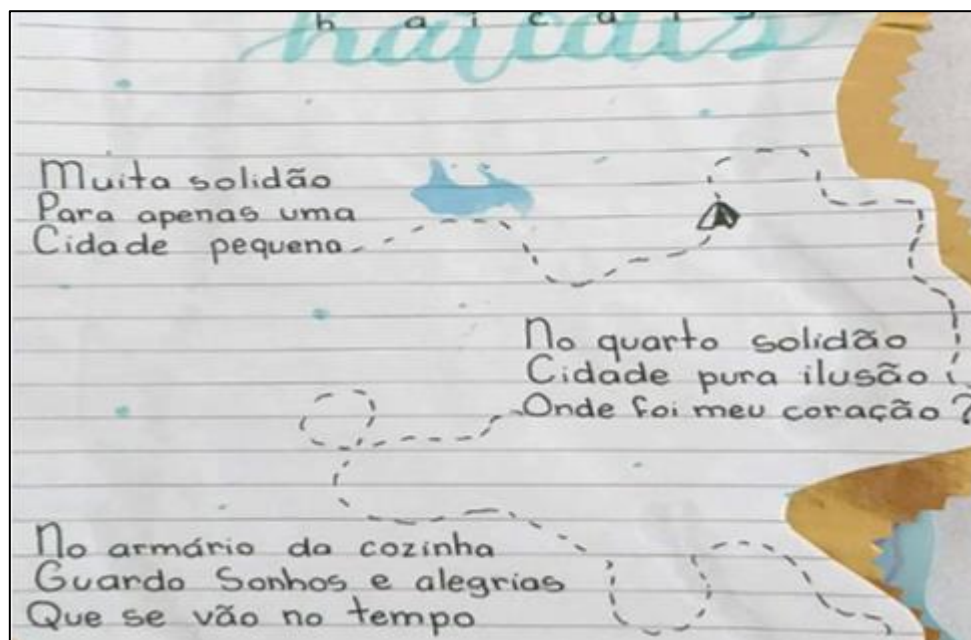 h a i c a i s
haicais
Muita solidão
Para apenas uma
Cidade pequena
No quarto solidão
Cidade pura ilusão
Onde foi meu coração?
No armário da cozinha
Guardo Sonhos e alegrias
Que se vão no tempo